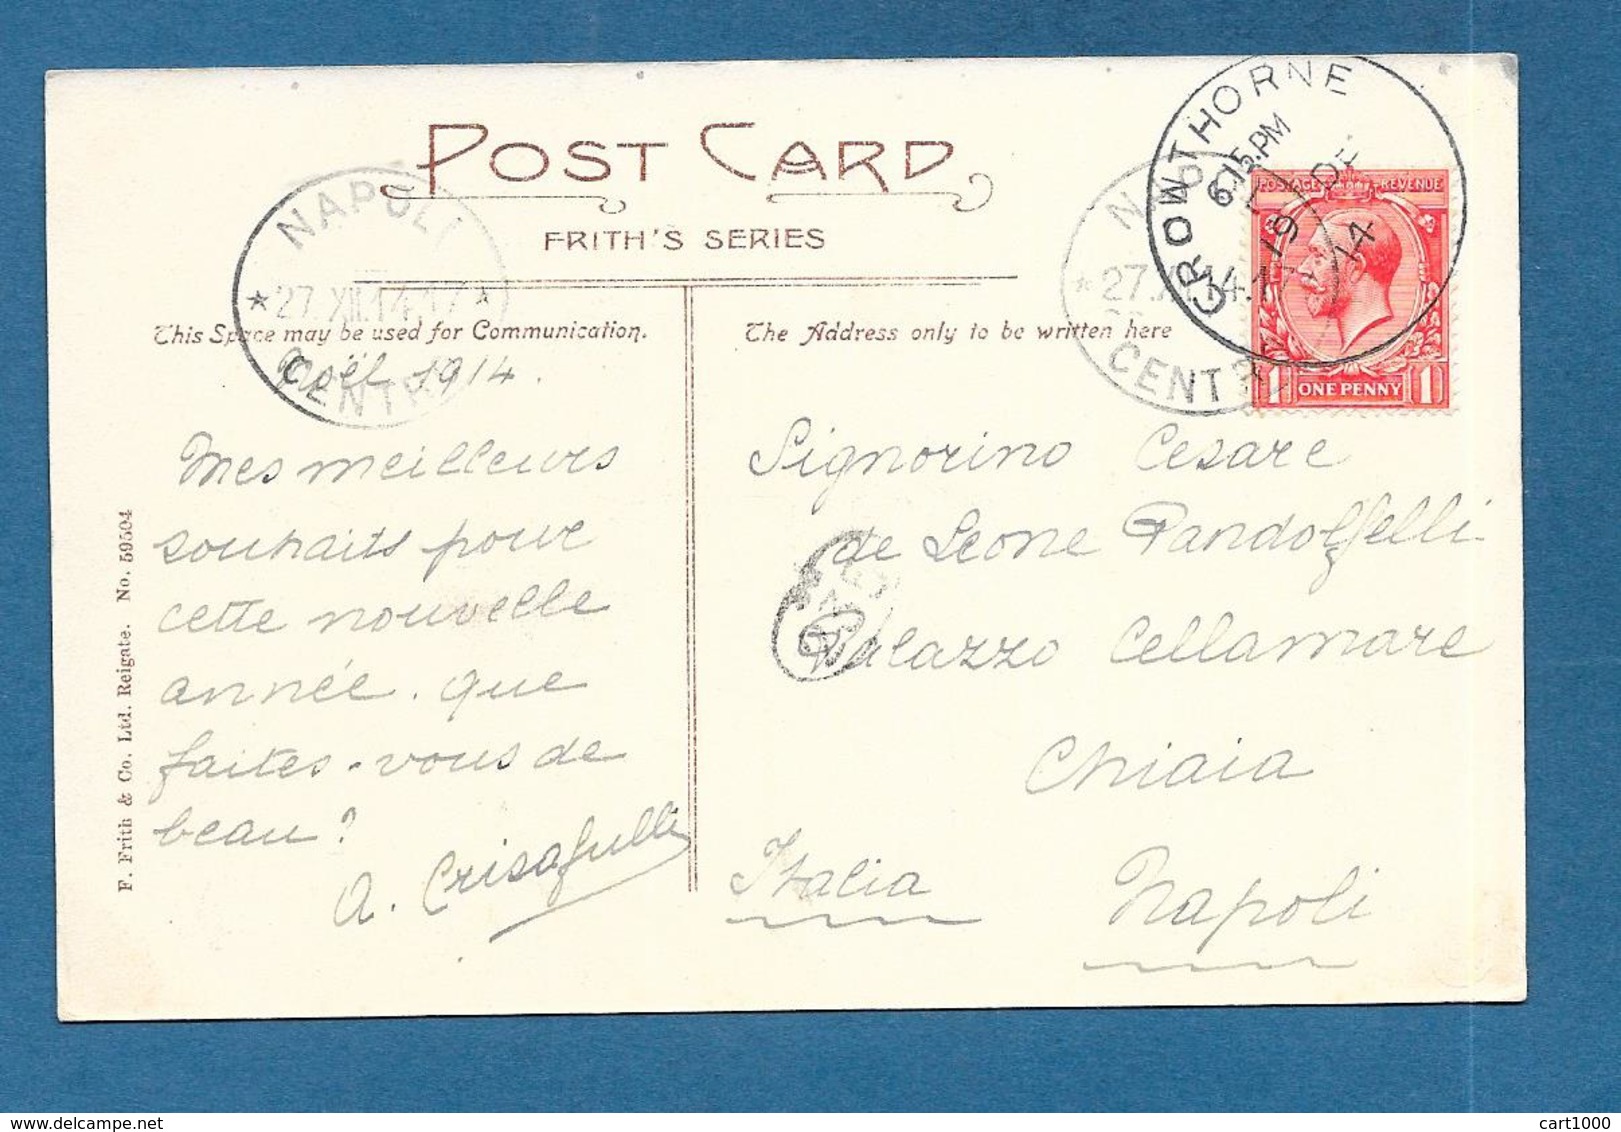 POST CARD
FRITH'S SERIES
This Space may be used for Communication.
The Address only to be written here
NAPOLI
27.XII.14.17
CENTRO
NAPOLI
27.XII.14.17
CENTRO
CROWTHORNE
6.15 PM
19 DE
14
POSTAGE REVENUE
1 ONE PENNY 1
F. Frith & Co. Ltd. Reigate. No. 59504
Noël 1914.
Mes meilleurs
souhaits pour
cette nouvelle
année. que
faites-vous de
beau?
A. Crisafulli
Signorino Cesare
de Leone Pandolfelli
Palazzo Cellamare
Chiaia
Italia Napoli
cart1000